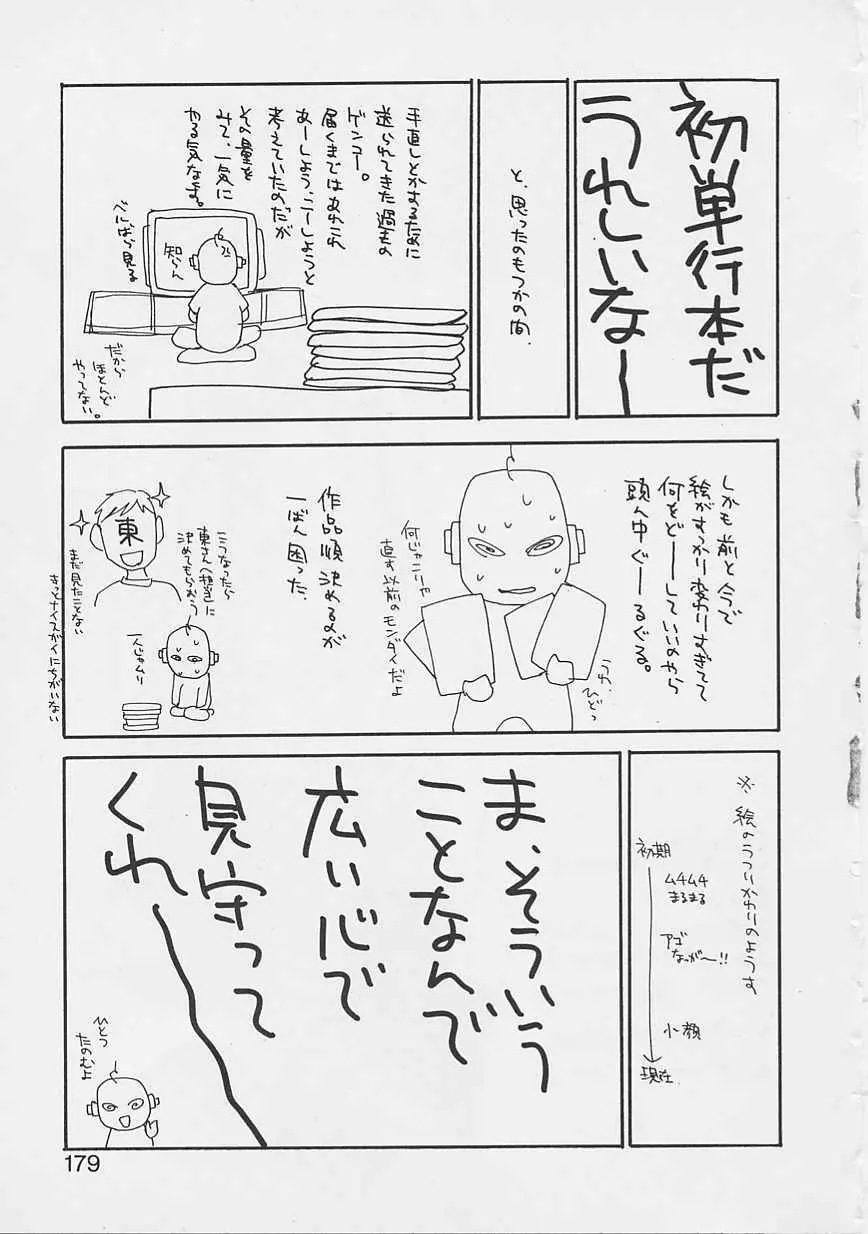 初単行本だ
うれしいなー
と、思ったのもつかの間、
手直しとかするために
送られてきた過去の
ゲンコー。
届くまではあれこれ
あーしよう、こーしようと
考えていたのだが
その量を
みて、一気に
やる気なます。
べにばら見る
知らん
だから
ほとんど
やってない。
しかも前と今で
絵がすっかり変わりすぎてて
何をどーしていいのやら
頭ん中ぐーるぐる。
うわ、
ひどっ
何じゃこりゃ
直す以前のモンダイだよ
作品順決めるのが
一ばん困った。
こうなったら
東さん(担当)に
決めてもらおう
一人じゃムリ
東
まだ見たことない
きっとナイスガイにちがいない
※絵のうつりかわりのようす
初期
ムチムチ
まるまる
アゴ
なっがー!!
小顔
現在
ま、そういう
ことなんで
広い心で
見守って
くれー
ひとつ
たのむよ
179